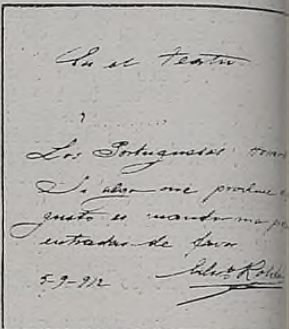 En el teatro
?
Los Portugueses
Si algo me produce
gusto es cuando me
entradas de favor
5-9-912